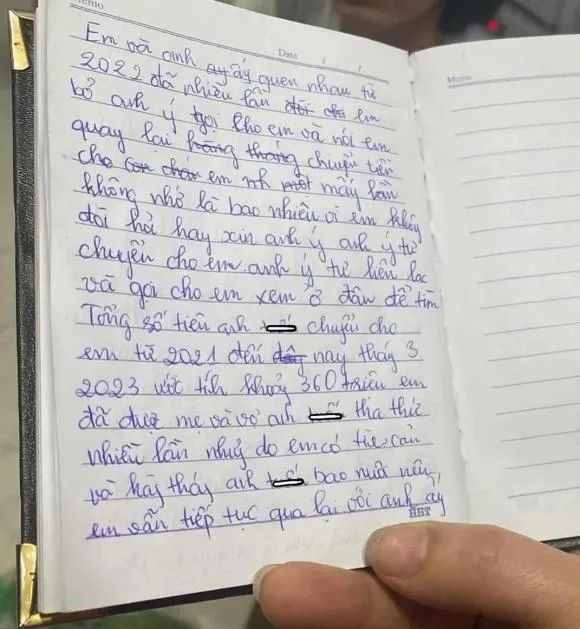 Memo
Date / /
Em và anh ấy quen nhau từ
2022 đã nhiều lần em
bỏ anh ý gọi cho em và nói em
quay lại hàng tháng chuyển tiền
cho em mấy lần
không nhớ là bao nhiêu vì em không
đòi hỏi hay xin anh ý anh ý tự
chuyển cho em. anh ý tự liên lạc
và gọi cho em xem ở đâu để tìm
Tổng số tiền anh chuyển cho
em từ 2021 đến nay tháng 3
2023 ước tính khoảng 360 triệu em
đã được mẹ và vợ anh tha thứ
nhiều lần nhưng do em có tiền
và hàng tháng anh bao nuôi nên
em vẫn tiếp tục qua lại với anh ấy
HHT
Memo